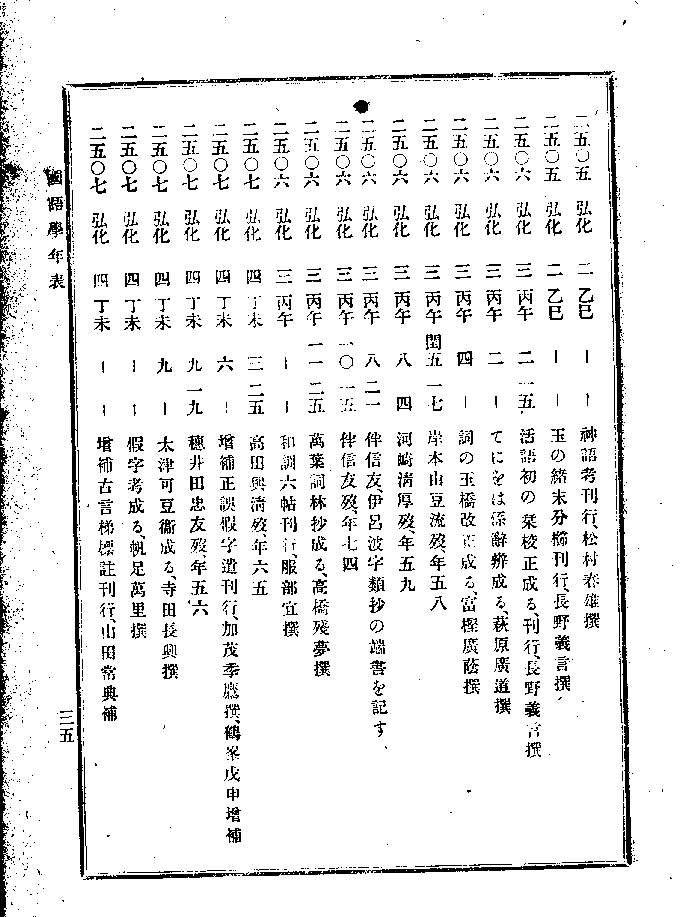 二五〇五 弘化 二 乙巳 ｜ ｜ 神語考刊行、松村春雄撰
二五〇五 弘化 二 乙巳 ｜ ｜ 玉の緒末分櫛刊行、長野義言撰
二五〇六 弘化 三 丙午 二 一五 活語初の栞校正成る、刊行、長野義言撰
二五〇六 弘化 三 丙午 二 ｜ てにをは係辭辨成る、萩原廣道撰
二五〇六 弘化 三 丙午 四 ｜ 詞の玉橋改正成る、富樫廣蔭撰
二五〇六 弘化 三 丙午 閏五 一七 岸本由豆流歿、年五八
二五〇六 弘化 三 丙午 八 四 河崎淸厚歿、年五九
二五〇六 弘化 三 丙午 八 二一 伴信友、伊呂波字類抄の端書を記す、
二五〇六 弘化 三 丙午 一〇 一五 伴信友歿、年七四
二五〇六 弘化 三 丙午 一一 二五 萬葉詞林抄成る、高橋殘夢撰
二五〇六 弘化 三 丙午 ｜ ｜ 和訓六帖刊行、服部宜撰
二五〇七 弘化 四 丁未 三 二五 高田與淸歿、年六五
二五〇七 弘化 四 丁未 六 ｜ 增補正誤假字遣刊行、加茂季鷹撰、鶴峯戊申增補
二五〇七 弘化 四 丁未 九 一九 穗井田忠友歿、年五六
二五〇七 弘化 四 丁未 九 ｜ 太津可豆衞成る、寺田長興撰
二五〇七 弘化 四 丁未 ｜ ｜ 假字考成る、帆足萬里撰
二五〇七 弘化 四 丁未 ｜ ｜ 增補古言梯標註刊行、山田常典補
國語學年表
三五